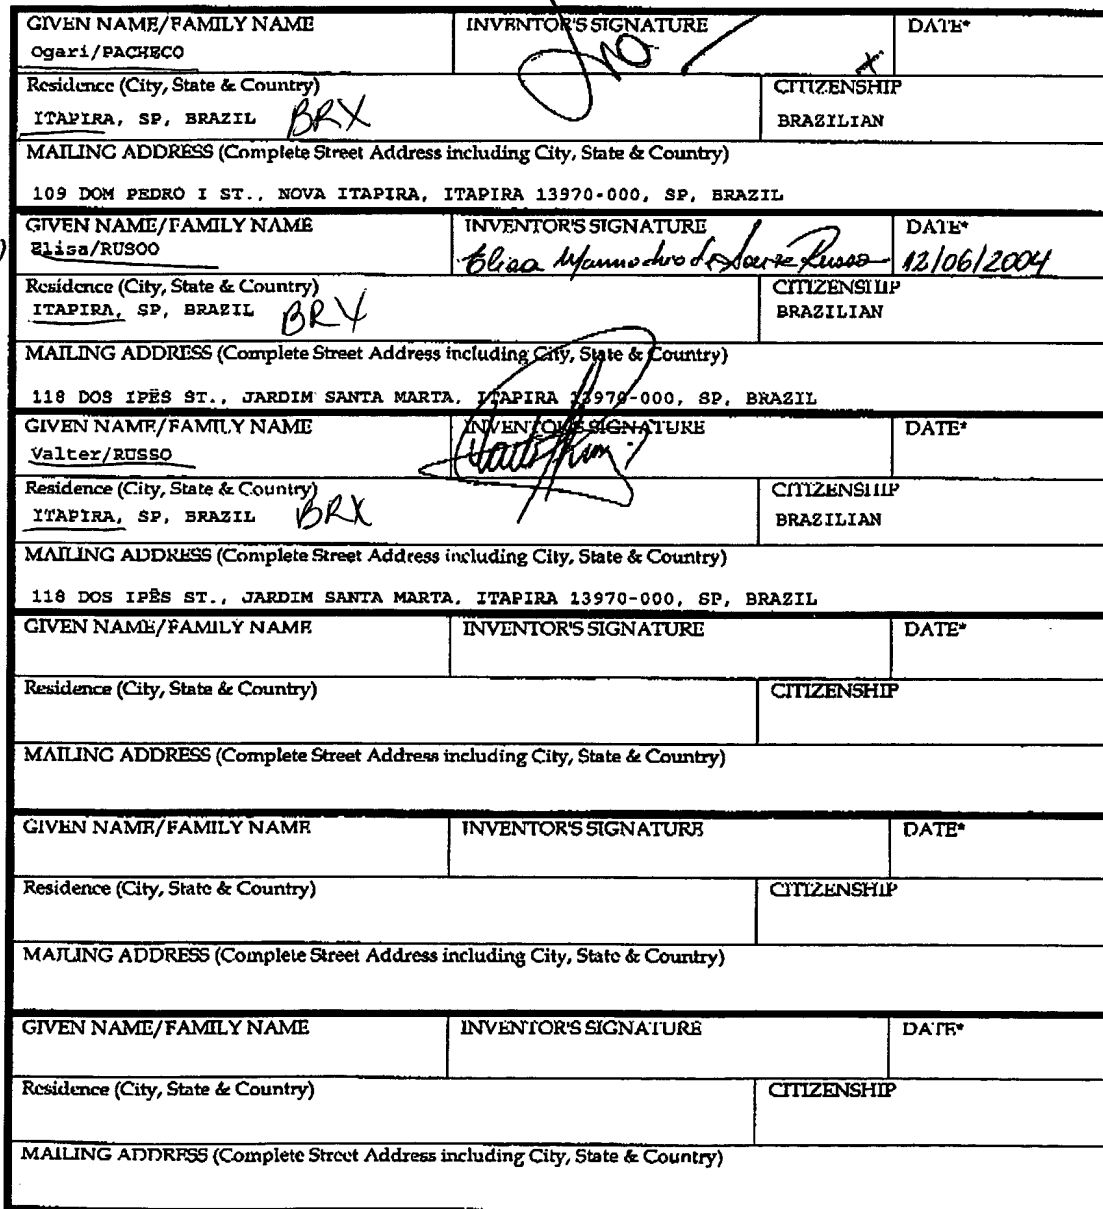 GIVEN NAME/FAMILY NAME INVENTOR'S SIGNATURE DATE*
Ogari/PACHECO
Residence (City, State & Country) CITIZENSHIP
ITAPIRA, SP, BRAZIL BRX BRAZILIAN
MAILING ADDRESS (Complete Street Address including City, State & Country)
109 DOM PEDRO I ST., NOVA ITAPIRA, ITAPIRA 13970-000, SP, BRAZIL
GIVEN NAME/FAMILY NAME INVENTOR'S SIGNATURE DATE*
Elisa/RUSOO Elisa Russo 12/06/2004
Residence (City, State & Country) CITIZENSHIP
ITAPIRA, SP, BRAZIL BRX BRAZILIAN
MAILING ADDRESS (Complete Street Address including City, State & Country)
118 DOS IPÊS ST., JARDIM SANTA MARTA, ITAPIRA 13970-000, SP, BRAZIL
GIVEN NAME/FAMILY NAME INVENTOR'S SIGNATURE DATE*
Valter/RUSSO
Residence (City, State & Country) CITIZENSHIP
ITAPIRA, SP, BRAZIL BRX BRAZILIAN
MAILING ADDRESS (Complete Street Address including City, State & Country)
118 DOS IPÊS ST., JARDIM SANTA MARTA, ITAPIRA 13970-000, SP, BRAZIL
GIVEN NAME/FAMILY NAME INVENTOR'S SIGNATURE DATE*
Residence (City, State & Country) CITIZENSHIP
MAILING ADDRESS (Complete Street Address including City, State & Country)
GIVEN NAME/FAMILY NAME INVENTOR'S SIGNATURE DATE*
Residence (City, State & Country) CITIZENSHIP
MAILING ADDRESS (Complete Street Address including City, State & Country)
GIVEN NAME/FAMILY NAME INVENTOR'S SIGNATURE DATE*
Residence (City, State & Country) CITIZENSHIP
MAILING ADDRESS (Complete Street Address including City, State & Country)